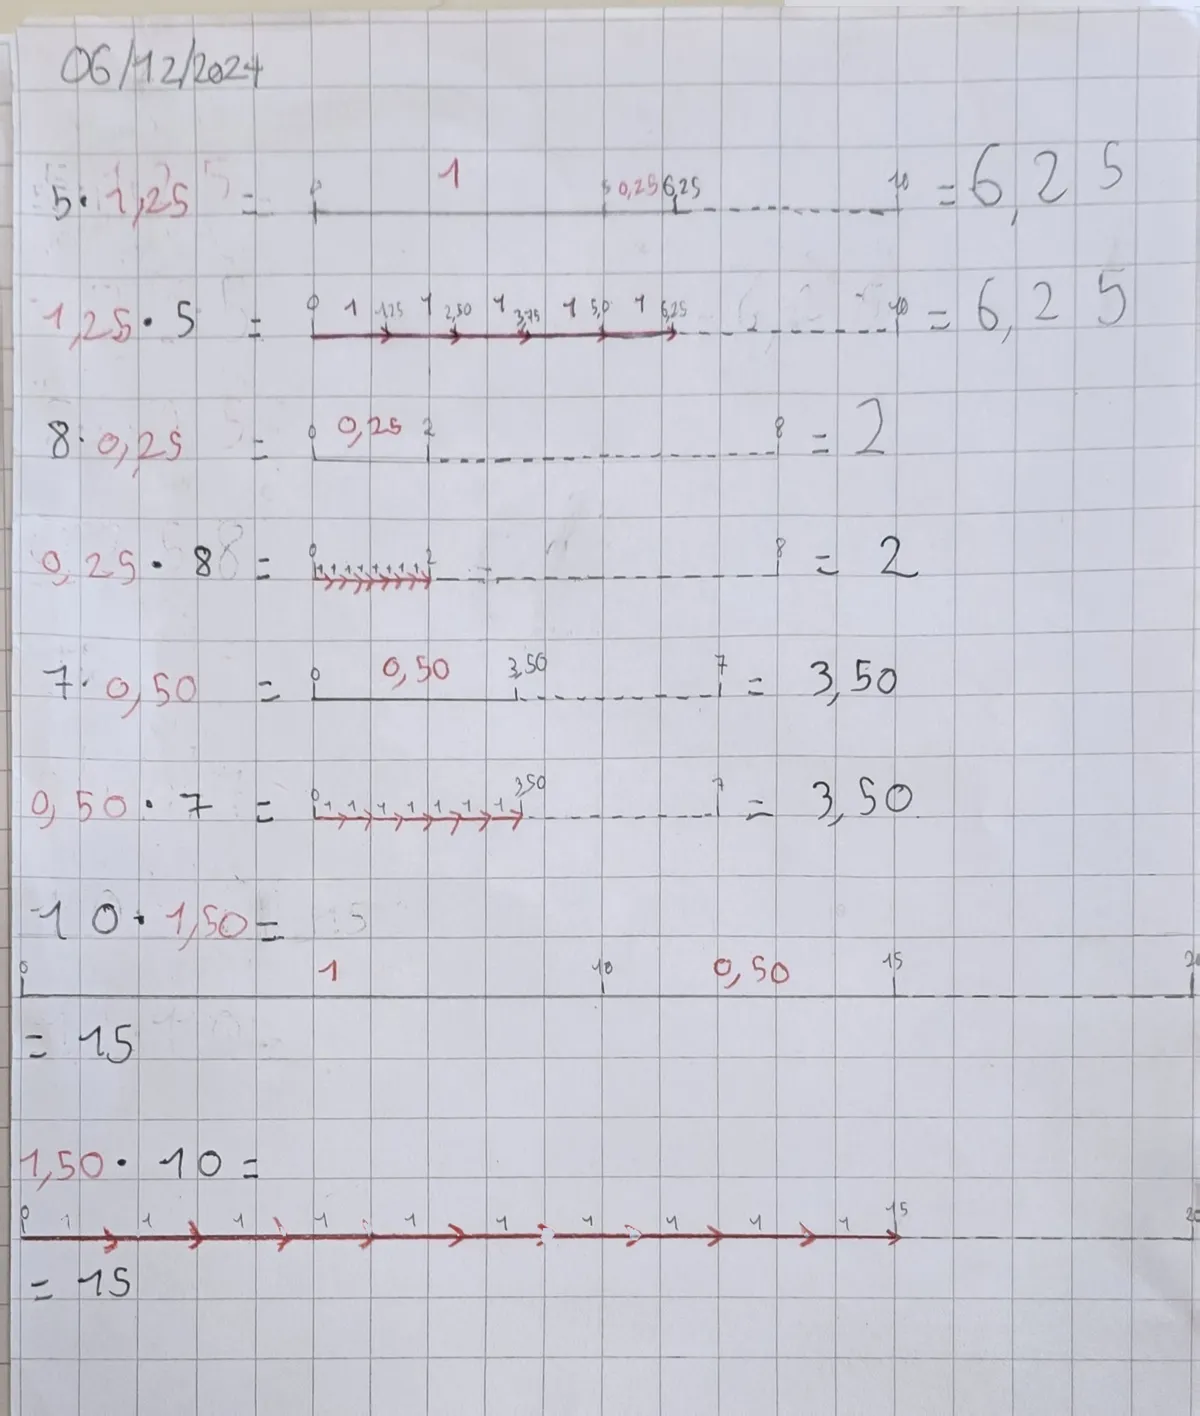 06/12/2024
5 · 1,25 = 0 1 5 0,25 6,25 10 = 6,25
1,25 · 5 = 0 1 1,25 1 2,50 1 3,75 1 5,0 1 6,25 10 = 6,25
8 · 0,25 = 0 0,25 2 8 = 2
0,25 · 8 = 0 1 1 1 1 1 1 1 1 2 8 = 2
7 · 0,50 = 0 0,50 3,50 7 = 3,50
0,50 · 7 = 0 1 1 1 1 1 1 1 3,50 7 = 3,50
10 · 1,50 =
0 1 10 0,50 15 20
= 15
1,50 · 10 =
0 1 1 1 1 1 1 1 1 1 1 15 20
= 15